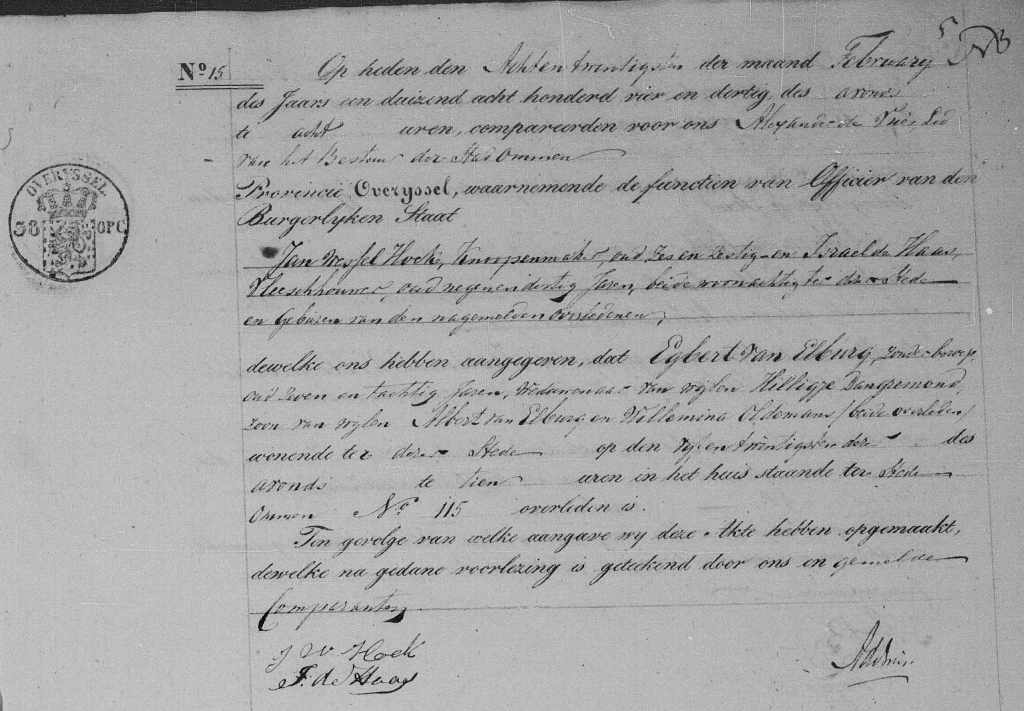 5
No 15
Op heden den Achtentwintigsten der maand February
des Jaars een duizend acht honderd vier en dertig, des avonds
te acht uren, compareerden voor ons Alexander de Vries Lid
van het Bestuur der Stad Ommen
Provincie Overyssel, waarnemende de functien van Officier van den
Burgerlyken Staat
OVERYSSEL
38 OPC
Jan Wessel Hoek, Knoopenmaker, oud zes en zestig en Israel de Haas,
Vleeschhouwer, oud negenendertig Jaren, beide woonachtig te deser Stede
en Geburen van den nagemelden overledenen,
dewelke ons hebben aangegeven, dat Egbert van Elburg, zonder beroep,
oud zeven en tachtig Jaren, Weduwenaar van wylen Hilligje Dangremond,
zoon van wylen Albert van Elburg en Willemina Oldemans /beide overleden/
wonende ter deser Stede op den vyfentwintigsten deser des
avonds te tien uren in het huis staande ter Stede
Ommen No 115 overleden is.
Ten gevolge van welke aangave wy deze Akte hebben opgemaakt,
dewelke na gedane voorlezing is geteekend door ons en gemelde
Comparanten
J W Hoek
J. de Haas